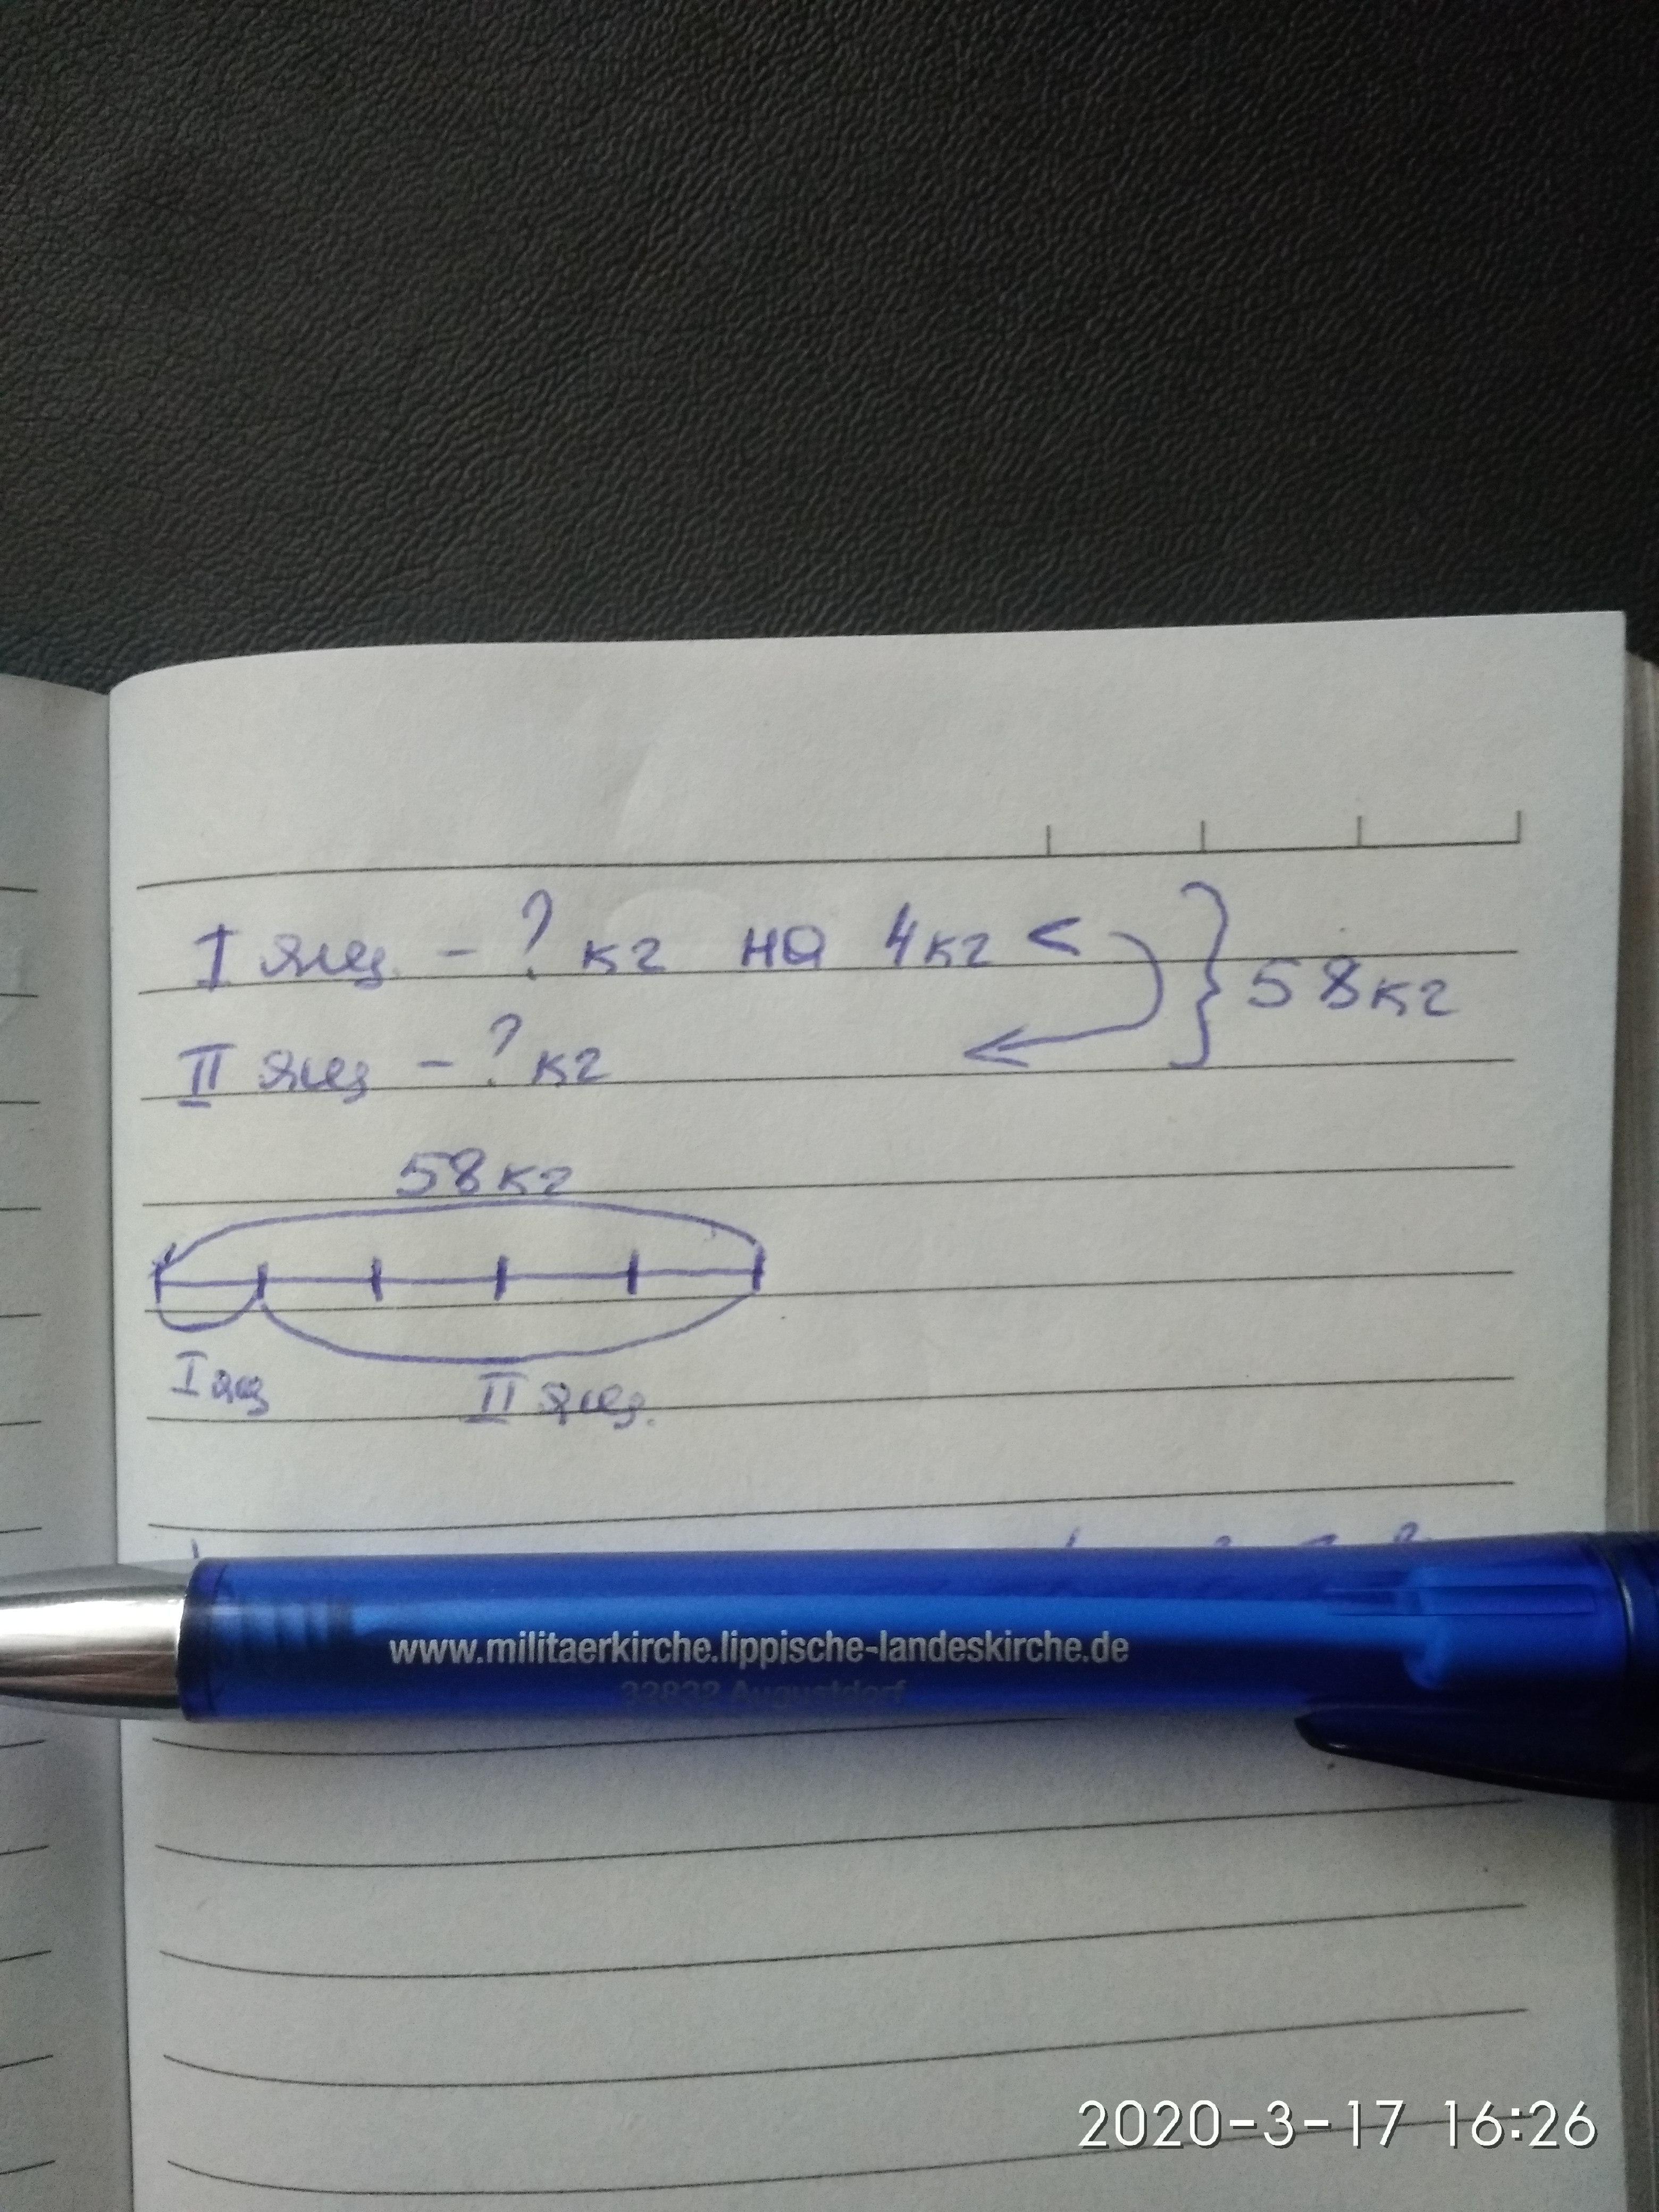 I ящ. - ? кг на 4кг <
} 58кг
II ящ - ? кг
58кг
I ящ
II ящ.
www.militaerkirche.lippische-landeskirche.de
32832 Augustdorf
2020-3-17 16:26